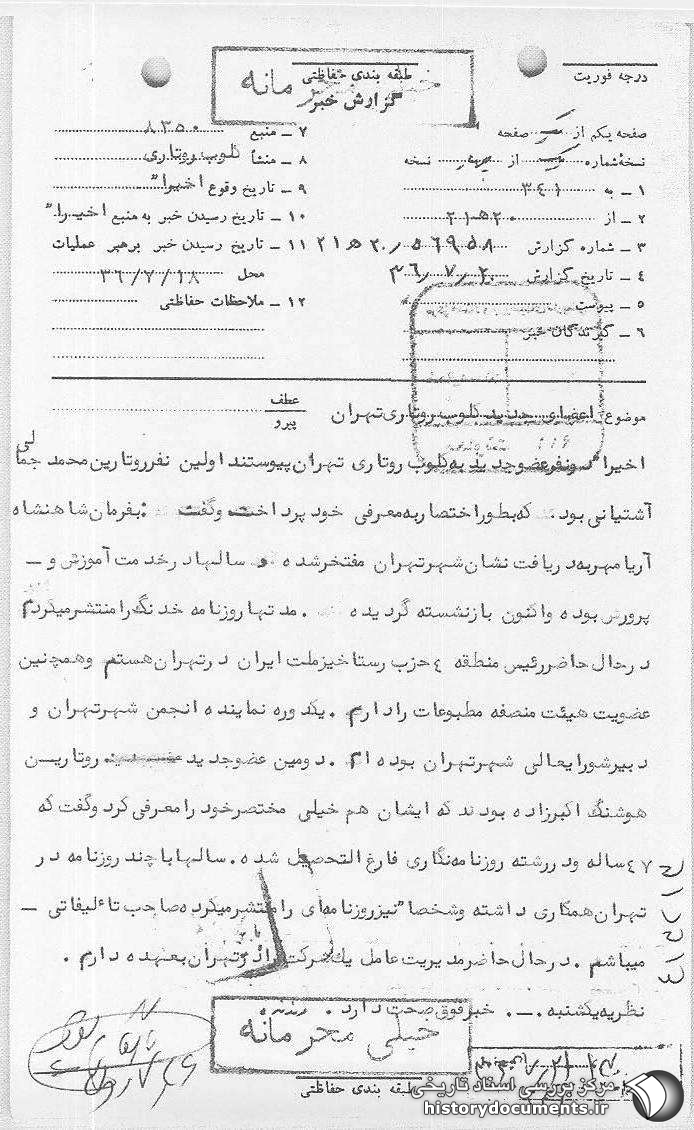 درجه فوریت
طبقه بندی حفاظتی
خیلی محرمانه
گزارش خبر
صفحه یکم از یک صفحه
نسخهٔ شماره یک از چهار نسخه
۱ ـ به ۳٤۱
۲ ـ از ۲۰ه۲۱
۳ ـ شماره گزارش ۲۰ه۲۱/۵۶۹۵۸
٤ ـ تاریخ گزارش ۳۶/۷/۲۰
۵ ـ پیوست
۶ ـ گیرندگان خبر
۷ ـ منبع ۸۳۵۰
۸ ـ منشأ کلوب روتاری
۹ ـ تاریخ وقوع اخیرا"
۱۰ ـ تاریخ رسیدن خبر به منبع اخیرا"
۱۱ ـ تاریخ رسیدن خبر برهبر عملیات
محل ۳۶/۷/۱۸
۱۲ ـ ملاحظات حفاظتی
موضوع: اعضای جدید کلوب روتاری تهران
عطف
پیرو
اخیرا" دونفرعضوجدید به کلوب روتاری تهران پیوستند اولین نفرروتارین محمد جمالی
آشتیانی بود. که بطور اختصار به معرفی خود پرداخت وگفت : بفرمان شاهنشاه
آریا مهر به دریافت نشان شهر تهران مفتخر شده و سالها در خدمت آموزش و ـ
پرورش بوده واکنون بازنشسته گردیده . مدتها روزنامه خدنگ را منتشر میکردم
در حال حاضر رئیس منطقه ٤ حزب رستاخیز ملت ایران در تهران هستم وهمچنین
عضویت هیئت منصفه مطبوعات را دارم . یکدوره نماینده انجمن شهر تهران و
دبیر شورایعالی شهر تهران بوده ام . دومین عضو جدید روتاریسن
هوشنگ اکبرزاده بودند که ایشان هم خیلی مختصر خود را معرفی کرد وگفت که
٤۷ ساله ودر رشته روزنامه نگاری فارغ التحصیل شده . سالها با چند روزنامه در
تهران همکاری داشته وشخصا" نیز روزنامه ای را منتشر میکرده صاحب تألیفاتی ـ
میباشم . در حال حاضر مدیریت عامل یک شرکت را در تهران بعهده دارم .
نظریه یکشنبه . ـ . خبر فوق صحت دارد .
خیلی محرمانه
طبقه بندی حفاظتی
مرکز بررسی اسناد تاریخی
historydocuments.ir